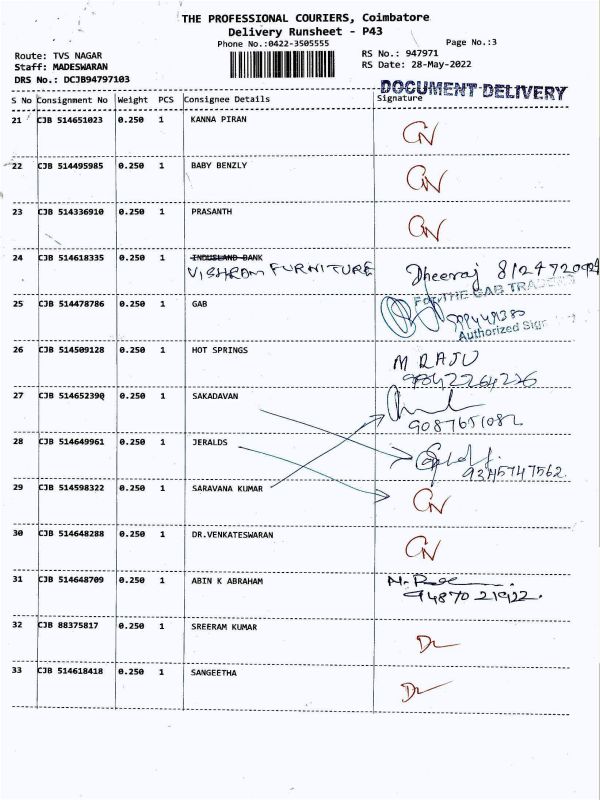 THE PROFESSIONAL COURIERS, Coimbatore
Delivery Runsheet - P43
Phone No.:0422-3505555
Page No.:3
Route: TVS NAGAR
RS No.: 947971
Staff: MADESWARAN
RS Date: 28-May-2022
DRS No.: DCJB94797103
DOCUMENT DELIVERY
S No Consignment No Weight PCS Consignee Details Signature
21 CJB 514651023 0.250 1 KANNA PIRAN CN
22 CJB 514495985 0.250 1 BABY BENZLY CN
23 CJB 514336910 0.250 1 PRASANTH CN
24 CJB 514618335 0.250 1 INDUSLAND BANK
VISHRAM FURNITURE Dheeraj
25 CJB 514478786 0.250 1 GAB For THE GAB TRADERS
Authorized
26 CJB 514509128 0.250 1 HOT SPRINGS M RAJU
9842264226
27 CJB 514652390 0.250 1 SAKADAVAN
9087651082
28 CJB 514649961 0.250 1 JERALDS
9345747562.
29 CJB 514598322 0.250 1 SARAVANA KUMAR CN
30 CJB 514648288 0.250 1 DR.VENKATESWARAN CN
31 CJB 514648709 0.250 1 ABIN K ABRAHAM
32 CJB 88375817 0.250 1 SREERAM KUMAR DL
33 CJB 514618418 0.250 1 SANGEETHA DL